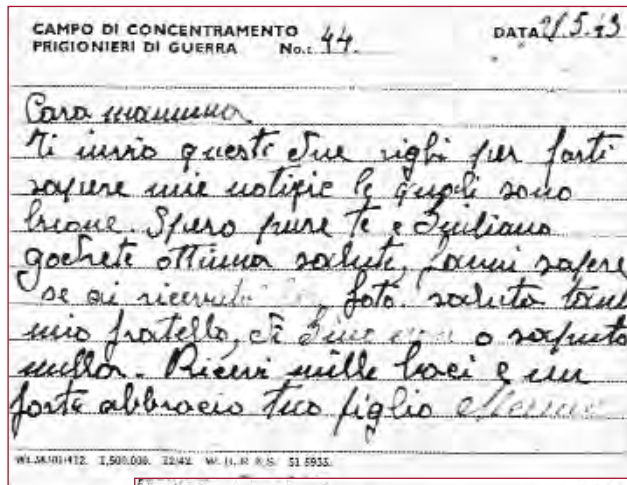 CAMPO DI CONCENTRAMENTO
PRIGIONIERI DI GUERRA No.: 44.
DATA 2/5.43
Cara mamma
Ti invio queste due righi per farti
sapere mie notizie le quali sono
buone. Spero pure te e Giuliano
godrete ottima salute, fammi sapere
se ai ricevuto foto. saluta tanto
mio fratello, di o saputo
nulla. Ricevi mille baci e un
forte abbraccio tuo figlio